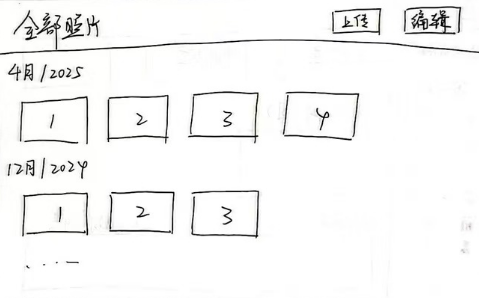 全部照片 上传 编辑
4月/2025
1 2 3 4
12月/2024
1 2 3
....